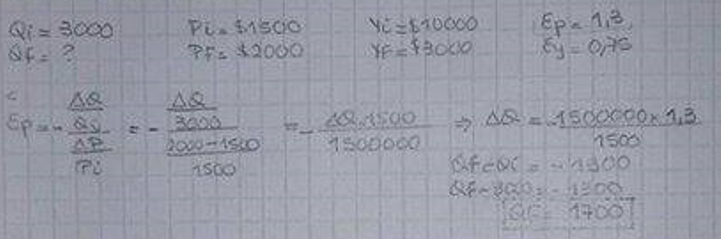 Qi = 3000 Pi = $1500 Yi = $10000 Ep = 1,3
Qf = ? Pf = $2000 Yf = $3000 Ey = 0,75
Ep = - ΔQ/Qi / ΔP/Pi = - ΔQ/3000 / 2000-1500/1500 = - ΔQ.1500/1500000 ⇒ ΔQ = -1500000×1,3/1500
Qf-Qi = -1300
Qf-3000 = -1300
Qf = 1700